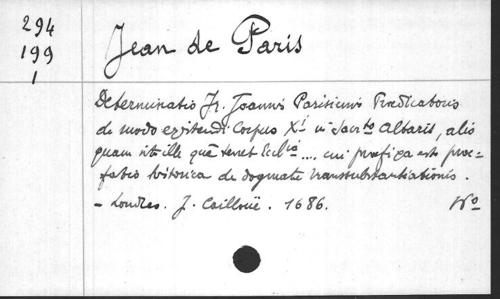 294
199
1
Jean de Paris
Determinatio Fr. Joannis Parisiensis Praedicatoris
de modo existendi Corpus Xi in Sacrto Altaris, alio
quam sit ille quem tenet Eccliâ .... cui praefixa est prae-
fatio historica de dogmate transsubstantiationis.
- Londres. J. Cailloüe. 1686. 8vo